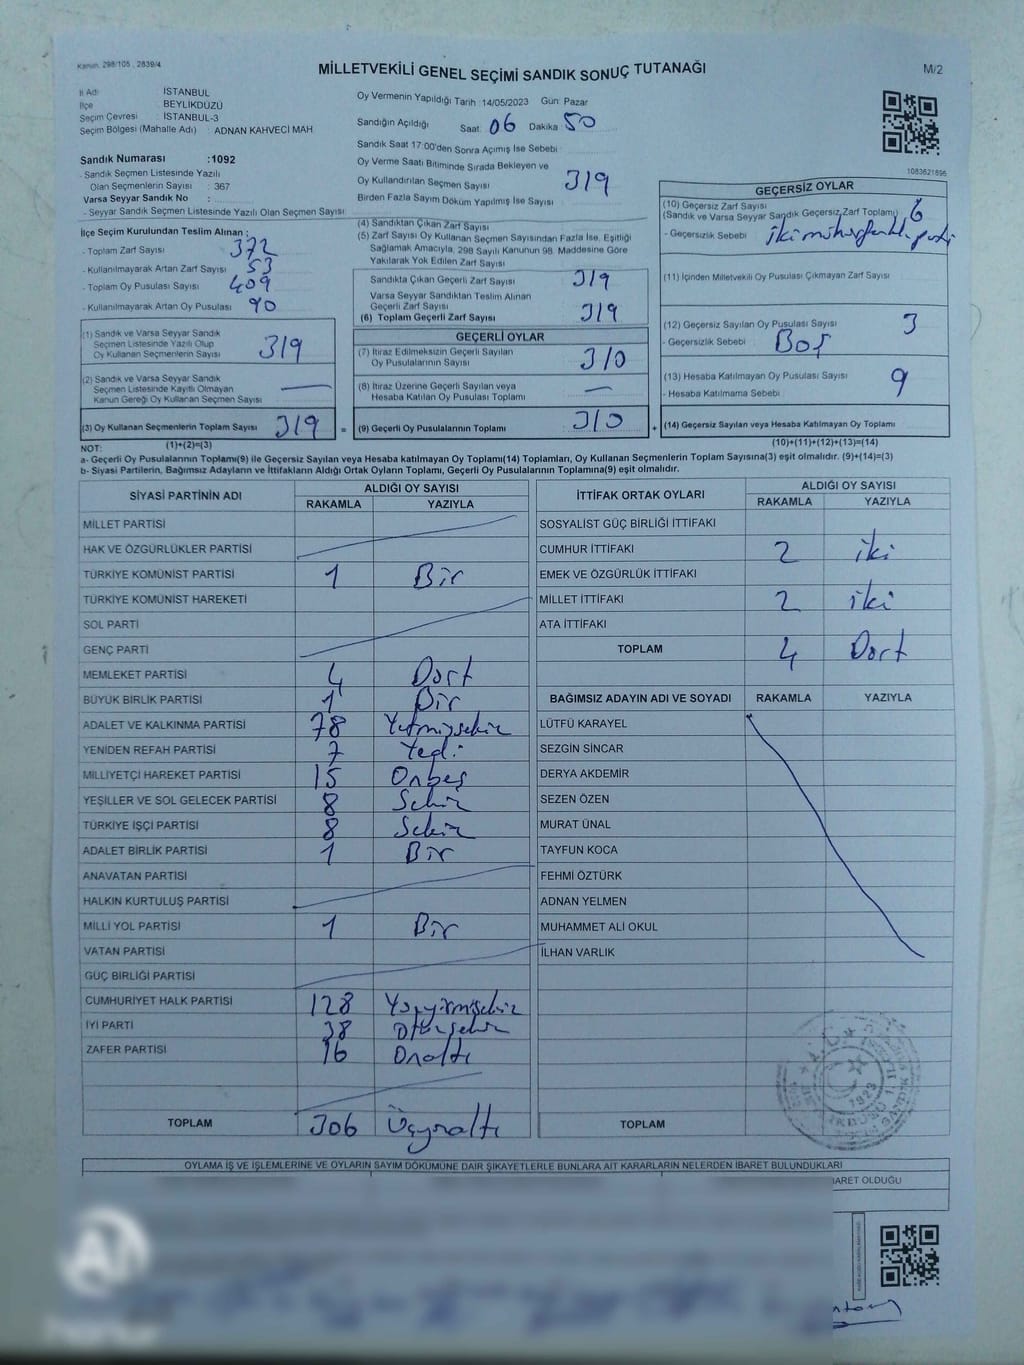 Kanun. 298/105 , 2839/4
MİLLETVEKİLİ GENEL SEÇİMİ SANDIK SONUÇ TUTANAĞI
M/2
İl Adı : İSTANBUL
İlçe : BEYLİKDÜZÜ
Seçim Çevresi : İSTANBUL-3
Seçim Bölgesi (Mahalle Adı) : ADNAN KAHVECİ MAH
Sandık Numarası :1092
- Sandık Seçmen Listesinde Yazılı
Olan Seçmenlerin Sayısı : 367
Varsa Seyyar Sandık No :
- Seyyar Sandık Seçmen Listesinde Yazılı Olan Seçmen Sayısı:
İlçe Seçim Kurulundan Teslim Alınan ;
- Toplam Zarf Sayısı : 372
- Kullanılmayarak Artan Zarf Sayısı : 53
- Toplam Oy Pusulası Sayısı : 409
- Kullanılmayarak Artan Oy Pusulası : 90
(1) Sandık ve Varsa Seyyar Sandık
Seçmen Listesinde Yazılı Olup
Oy Kullanan Seçmenlerin Sayısı : 319
(2) Sandık ve Varsa Seyyar Sandık
Seçmen Listesinde Kayıtlı Olmayan
Kanun Gereği Oy Kullanan Seçmen Sayısı :
(3) Oy Kullanan Seçmenlerin Toplam Sayısı : 319 =
(1)+(2)=(3)
Oy Vermenin Yapıldığı Tarih : 14/05/2023 Gün: Pazar
Sandığın Açıldığı Saat: 06 Dakika: 50
Sandık Saat 17:00'den Sonra Açımış İse Sebebi :
Oy Verme Saati Bitiminde Sırada Bekleyen ve
Oy Kullandırılan Seçmen Sayısı : 319
Birden Fazla Sayım Döküm Yapılmış İse Sayısı :
(4) Sandıktan Çıkan Zarf Sayısı :
(5) Zarf Sayısı Oy Kullanan Seçmen Sayısından Fazla İse, Eşitliği
Sağlamak Amacıyla, 298 Sayılı Kanunun 98. Maddesine Göre
Yakılarak Yok Edilen Zarf Sayısı :
Sandıkta Çıkan Geçerli Zarf Sayısı : 319
Varsa Seyyar Sandıktan Teslim Alınan
Geçerli Zarf Sayısı :
(6) Toplam Geçerli Zarf Sayısı : 319
GEÇERLİ OYLAR
(7) İtiraz Edilmeksizin Geçerli Sayılan
Oy Pusulalarının Sayısı : 310
(8) İtiraz Üzerine Geçerli Sayılan veya
Hesaba Katılan Oy Pusulası Toplamı :
(9) Geçerli Oy Pusulalarının Toplamı : 310 +
1083621896
GEÇERSİZ OYLAR
(10) Geçersiz Zarf Sayısı
(Sandık ve Varsa Seyyar Sandık Geçersiz Zarf Toplamı) : 6
- Geçersizlik Sebebi : iki
(11) İçinden Milletvekili Oy Pusulası Çıkmayan Zarf Sayısı :
(12) Geçersiz Sayılan Oy Pusulası Sayısı : 3
- Geçersizlik Sebebi : Boş
(13) Hesaba Katılmayan Oy Pusulası Sayısı : 9
- Hesaba Katılmama Sebebi :
(14) Geçersiz Sayılan veya Hesaba Katılmayan Oy Toplamı :
(10)+(11)+(12)+(13)=(14)
NOT:
a- Geçerli Oy Pusulalarının Toplamı(9) ile Geçersiz Sayılan veya Hesaba katılmayan Oy Toplamı(14) Toplamları, Oy Kullanan Seçmenlerin Toplam Sayısına(3) eşit olmalıdır. (9)+(14)=(3)
b- Siyasi Partilerin, Bağımsız Adayların ve İttifakların Aldığı Ortak Oyların Toplamı, Geçerli Oy Pusulalarının Toplamına(9) eşit olmalıdır.
SİYASİ PARTİNİN ADI ALDIĞI OY SAYISI
RAKAMLA YAZIYLA
MİLLET PARTİSİ
HAK VE ÖZGÜRLÜKLER PARTİSİ
TÜRKİYE KOMÜNİST PARTİSİ 1 Bir
TÜRKİYE KOMÜNİST HAREKETİ
SOL PARTİ
GENÇ PARTİ
MEMLEKET PARTİSİ 4 Dört
BÜYÜK BİRLİK PARTİSİ 1 Bir
ADALET VE KALKINMA PARTİSİ 78 Yetmişsekiz
YENİDEN REFAH PARTİSİ 7 Yedi
MİLLİYETÇİ HAREKET PARTİSİ 15 Onbeş
YEŞİLLER VE SOL GELECEK PARTİSİ 8 Sekiz
TÜRKİYE İŞÇİ PARTİSİ 8 Sekiz
ADALET BİRLİK PARTİSİ 1 Bir
ANAVATAN PARTİSİ
HALKIN KURTULUŞ PARTİSİ
MİLLİ YOL PARTİSİ 1 Bir
VATAN PARTİSİ
GÜÇ BİRLİĞİ PARTİSİ
CUMHURİYET HALK PARTİSİ 128 Yüzyirmisekiz
İYİ PARTİ 38 Otuzsekiz
ZAFER PARTİSİ 16 Onaltı
TOPLAM 306 Üçyüzaltı
İTTİFAK ORTAK OYLARI ALDIĞI OY SAYISI
RAKAMLA YAZIYLA
SOSYALİST GÜÇ BİRLİĞİ İTTİFAKI
CUMHUR İTTİFAKI 2 iki
EMEK VE ÖZGÜRLÜK İTTİFAKI
MİLLET İTTİFAKI 2 iki
ATA İTTİFAKI
TOPLAM 4 Dört
BAĞIMSIZ ADAYIN ADI VE SOYADI RAKAMLA YAZIYLA
LÜTFÜ KARAYEL
SEZGİN SİNCAR
DERYA AKDEMİR
SEZEN ÖZEN
MURAT ÜNAL
TAYFUN KOCA
FEHMİ ÖZTÜRK
ADNAN YELMEN
MUHAMMET ALİ OKUL
İLHAN VARLIK
TOPLAM
1923
OYLAMA İŞ VE İŞLEMLERİNE VE OYLARIN SAYIM DÖKÜMÜNE DAİR ŞİKAYETLERLE BUNLARA AİT KARARLARIN NELERDEN İBARET BULUNDUKLARI
BARET OLDUĞU